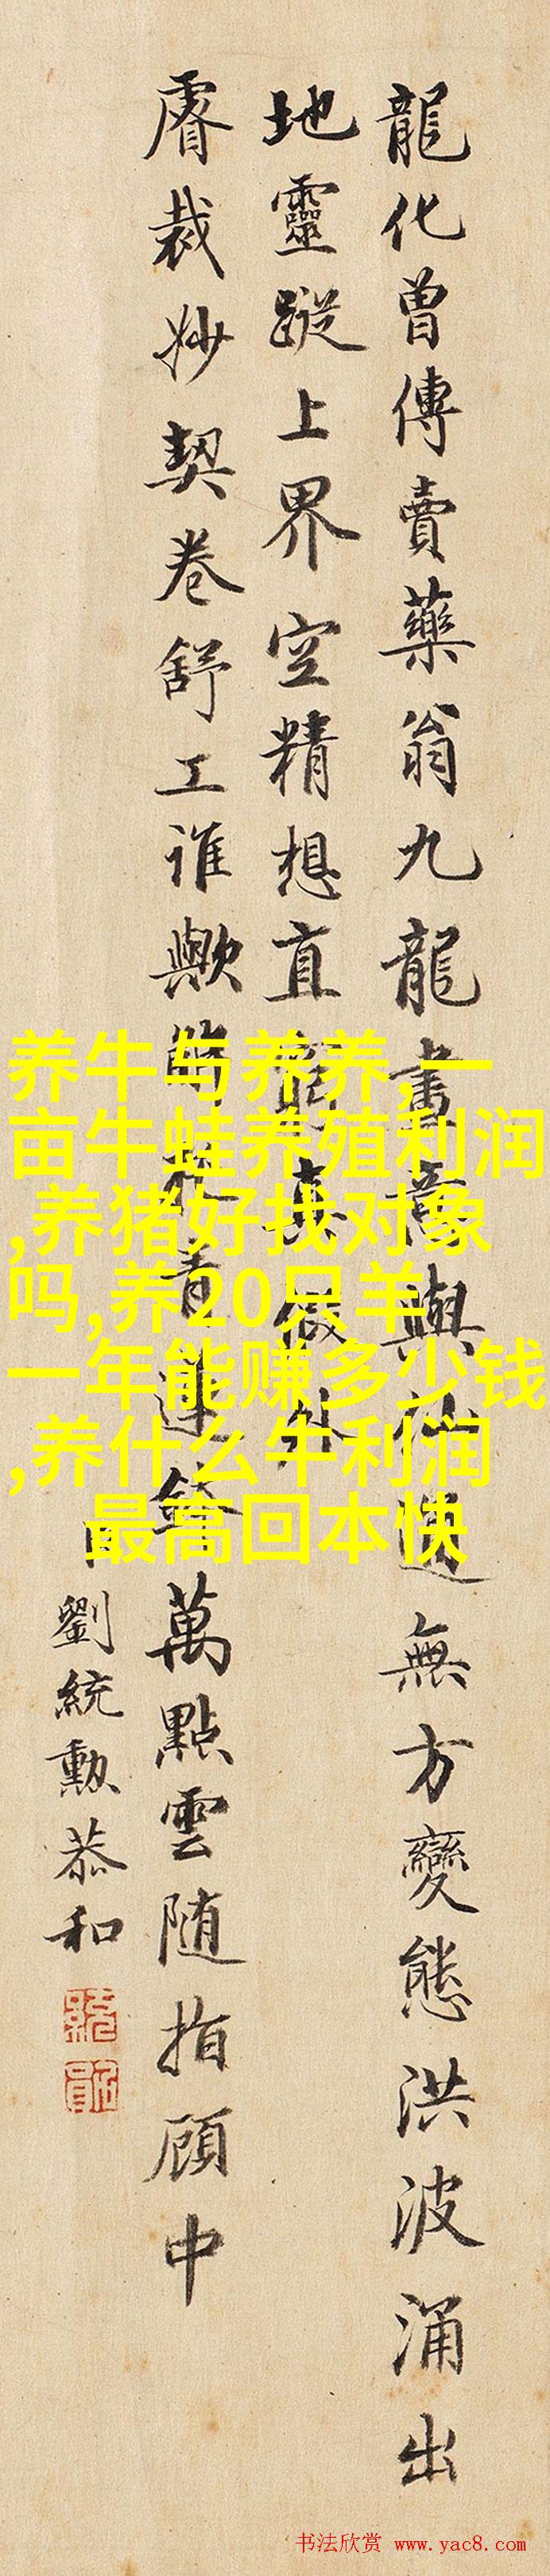 龍化曾傳賣藥翁九龍畫意與神通無方變態洪波涌出
地靈蹤上界空精想直窮真假外
睿裁妙契卷舒工誰歟青蓮鉢萬點雲隨指顧中
劉統勳恭和
养牛与养养,一
亩牛蛙养殖利润
,养猪好找对象
吗,养20只羊
一年能赚多少钱
,养什么牛利润
最高回本快
书法欣赏 www.yac8.com